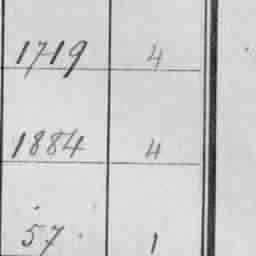 1719 4
1884 4
57 1